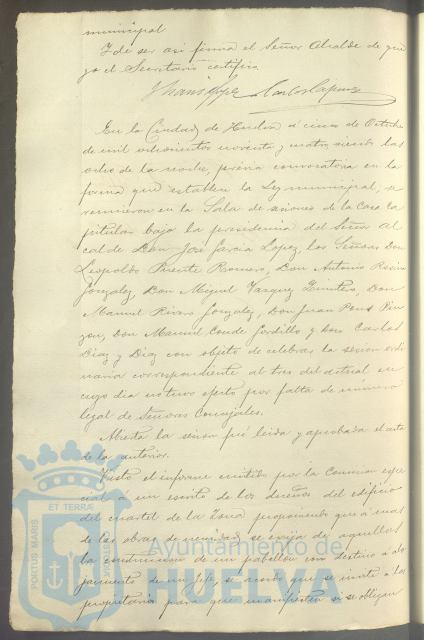 municipal
Y de ser así firma el Señor Alcalde de que
yo el Secretario certifico
En la Ciudad de Huelva á cinco de Octubre
de mil ochocientos noventa y cuatro, siendo las
ocho de la noche, previa convocatoria en la
forma que establece la Ley municipal, se
reunieron en la Sala de sesiones de la Casa Ca
pitular bajo la presidencia del Señor Al
calde Don José García Lopez, los Señores Don
Leopoldo Romero, Don Antonio
Gonzalez, Don Miguel Vazquez Don
Manuel Rivas Gonzalez, Don Juan Pons Pin
zon, Don Manuel Conde Gordillo y Don Carlos
Diaz y Diaz con objeto de celebrar la sesion ordi
naria correspondiente al tres del actual en
cuyo dia no tuvo efecto por falta de número
legal de Señores Concejales.
Abierta la sesion fué leida y aprobada el acta
de la anterior.
Visto el informe emitido por la Comision espe
cial á un escrito de los dueños del edificio
del cuartel de la proponiendo que á mas
de las obras de se exija de aquellos
la construccion de un pabellon con destino á alo
jamiento de un Jefe, se acordó que se invite á los
propietarios para que manifiesten si se obligan
PORTUS MARIS
ET TERRÆ
CUSTODIA
Ayuntamiento de
HUELVA